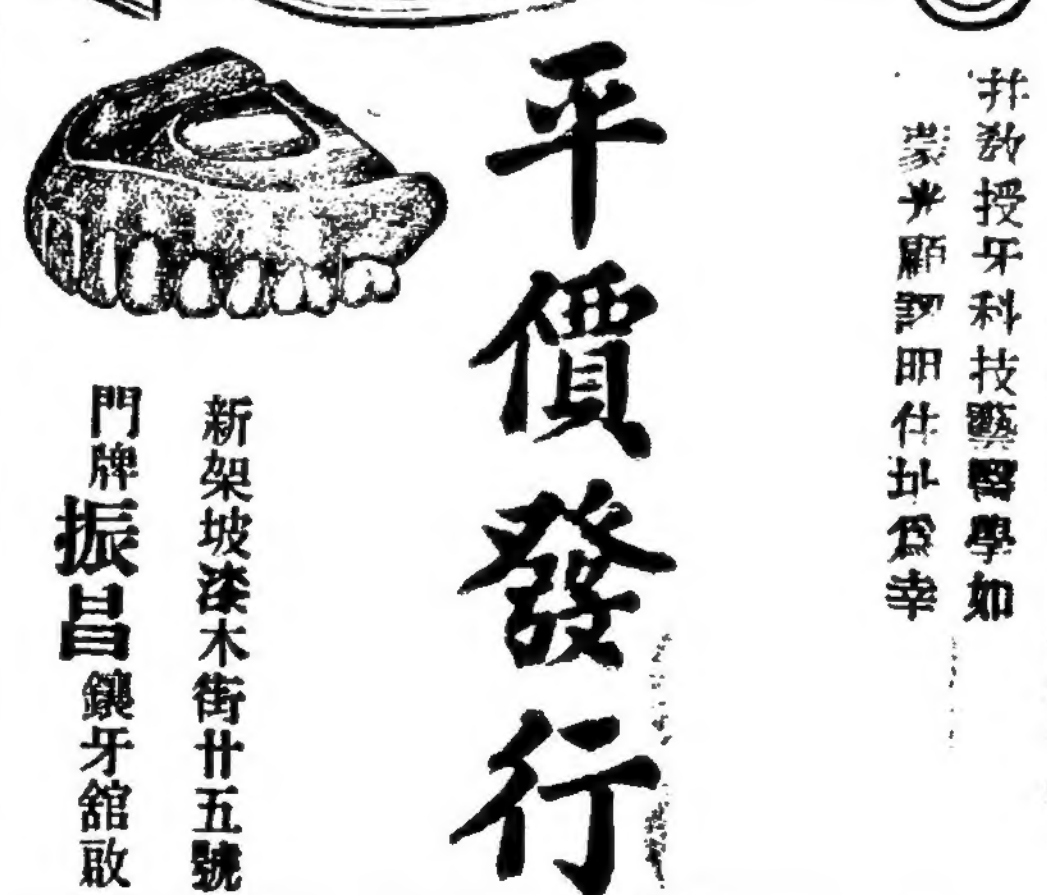 幷敎授牙科技藝醫學如
蒙光顧認明住址爲幸
平價發行
新架坡漆木街廿五號
門牌振昌鑲牙舘啟